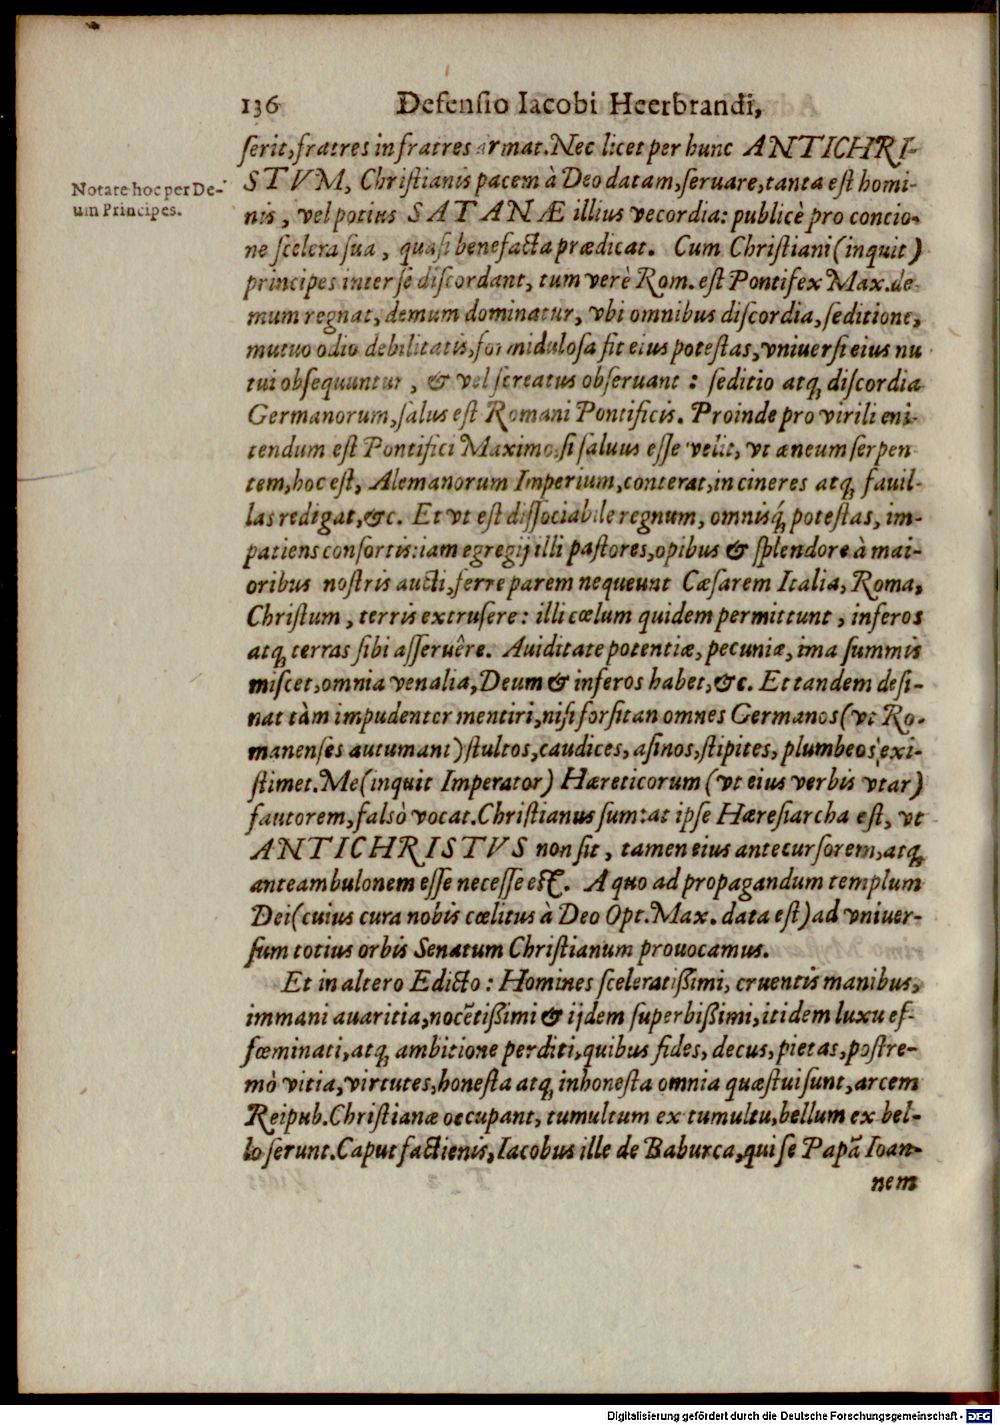 136 Defensio Iacobi Heerbrandi,
serit, fratres in fratres armat. Nec licet per hunc ANTICHRI-
STVM, Christianis pacem à Deo datam, seruare, tanta est homi-
Notate hoc per De-
um Principes.
nis, vel potius SATANÆ illius vecordia: publicè pro concio-
ne scelera sua, quasi benefacta prædicat. Cum Christiani (inquit)
principes inter se discordant, tum verè Rom. est Pontifex Max. de
mum regnat, demum dominatur, vbi omnibus discordia, seditione,
mutuo odio debilitatis, formidulosa sit eius potestas, vniuersi eius nu
tui obsequuntur, & vel screatus obseruant: seditio atq; discordia
Germanorum, salus est Romani Pontificis. Proinde pro virili eni-
tendum est Pontifici Maximo, si saluus esse velit, vt æneum serpen
tem, hoc est, Alemanorum Imperium, conterat, in cineres atq; fauil-
las redigat, &c. Et vt est dissociabile regnum, omnisq́; potestas, im-
patiens consortis: iam egregij illi pastores, opibus & splendore à mai-
oribus nostris aucti, ferre parem nequeunt Cæsarem Italia, Roma,
Christum, terris extrusere: illi cœlum quidem permittunt, inferos
atq; terras sibi asseruêre. Auiditate potentiæ, pecuniæ, ima summis
miscet, omnia venalia, Deum & inferos habet, &c. Et tandem desi-
nat tàm impudenter mentiri, nisi forsitan omnes Germanos (vt Ro-
manenses autumant) stultos, caudices, asinos, stipites, plumbeos, exi-
stimet. Me (inquit Imperator) Hæreticorum (vt eius verbis vtar)
fautorem, falsò vocat. Christianus sum: at ipse Hæresiarcha est, vt
ANTICHRISTVS non sit, tamen eius antecursorem, atq;
anteambulonem esse necesse est. A quo ad propagandum templum
Dei (cuius cura nobis cœlitus à Deo Opt. Max. data est) ad vniuer-
sum totius orbis Senatum Christianum prouocamus.
Et in altero Edicto: Homines sceleratißimi, cruentis manibus,
immani auaritia, nocẽtißimi & ijdem superbißimi, itidem luxu ef-
fœminati, atq; ambitione perditi, quibus fides, decus, pietas, postre-
mò vitia, virtutes, honesta atq; inhonesta omnia quæstui sunt, arcem
Reipub. Christianæ occupant, tumultum ex tumultu, bellum ex bel-
lo serunt. Caput factienis, Iacobus ille de Baburca, qui se Papã Ioan-
nem
Digitalisierung gefördert durch die Deutsche Forschungsgemeinschaft - DFG